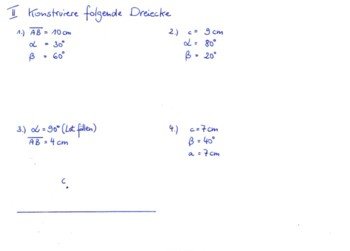 II Konstruiere folgende Dreiecke
1.) AB = 10 cm
α = 30°
β = 60°
2.) c = 9 cm
α = 80°
β = 20°
3.) α = 90° (Lot fällen)
AB = 4 cm
C
4.) c = 7 cm
β = 40°
a = 7 cm